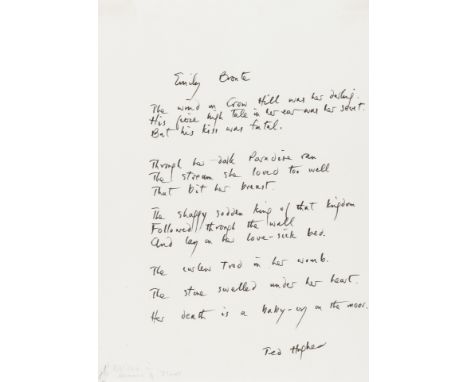 Emily Bronte
The wind on Crow Hill was her darling.
His fierce high tale in her ear was her secret.
But his kiss was fatal.
Through her dark Paradise ran
The stream she loved too well
That bit her breast.
The shaggy sodden king of that kingdom
Followed through the wall
And lay on her love-sick bed.
The curlew trod in her womb.
The stone swelled under her heart.
Her death is a baby-cry on the moor.
Ted Hughes